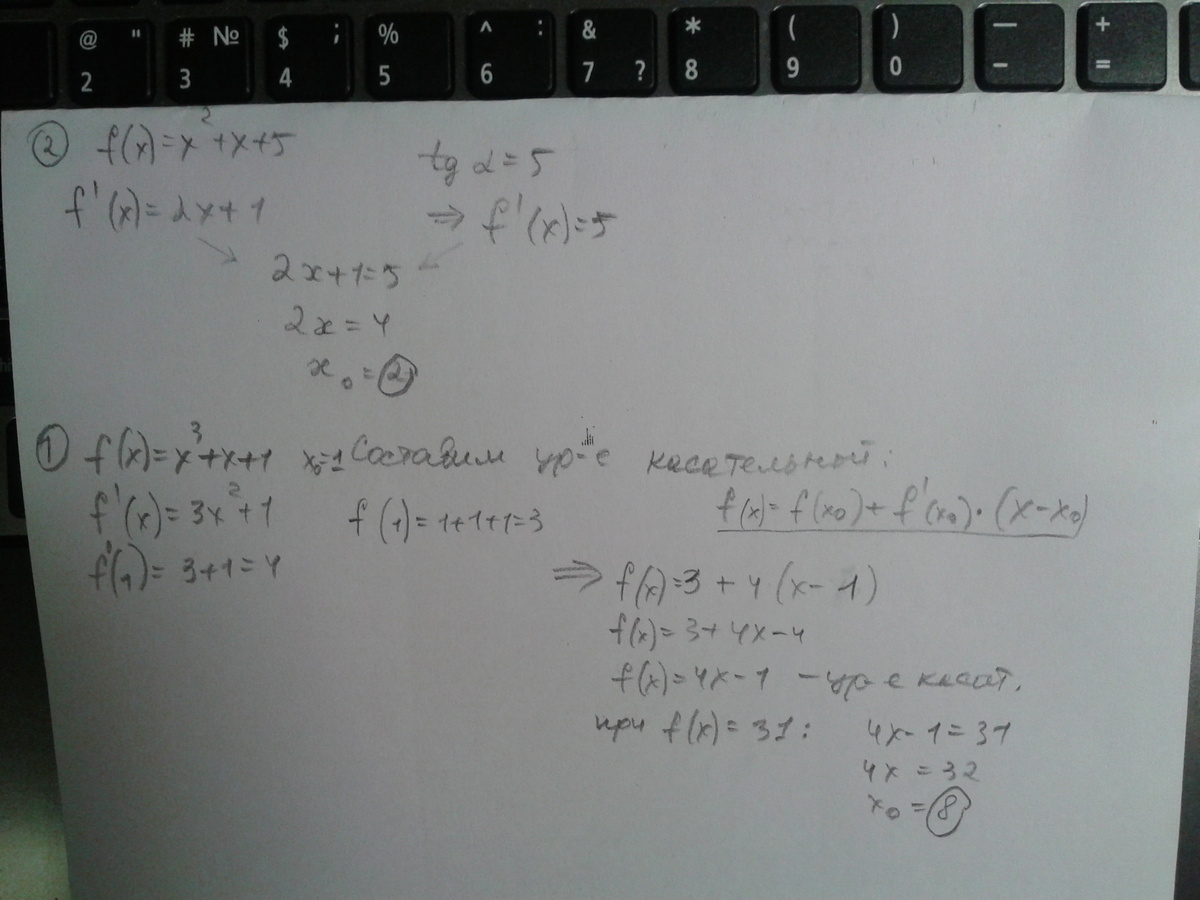 @ " # № $ ; % ^ : & * ( ) — +
2 3 4 5 6 7 ? 8 9 0 - =
② f(x)=x²+x+5
tg α=5
f'(x)=2x+1
⇒ f'(x)=5
2x+1=5
2x=4
x₀=2
① f(x)=x³+x+1 x₀=1 Составим ур-е касательной:
f'(x)=3x²+1 f(1)=1+1+1=3 f(x)=f(x₀)+f'(x₀)·(x-x₀)
f'(1)=3+1=4
⇒ f(x)=3+4(x-1)
f(x)=3+4x-4
f(x)=4x-1 - ур-е касат.
при f(x)=31: 4x-1=31
4x=32
x₀=8